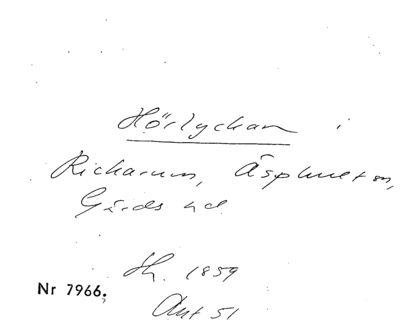 Hörlyckan i
Rickarum, Äsphult sn,
Gärds hd.
Sk. 1859
Nr 7966.
Akt 51